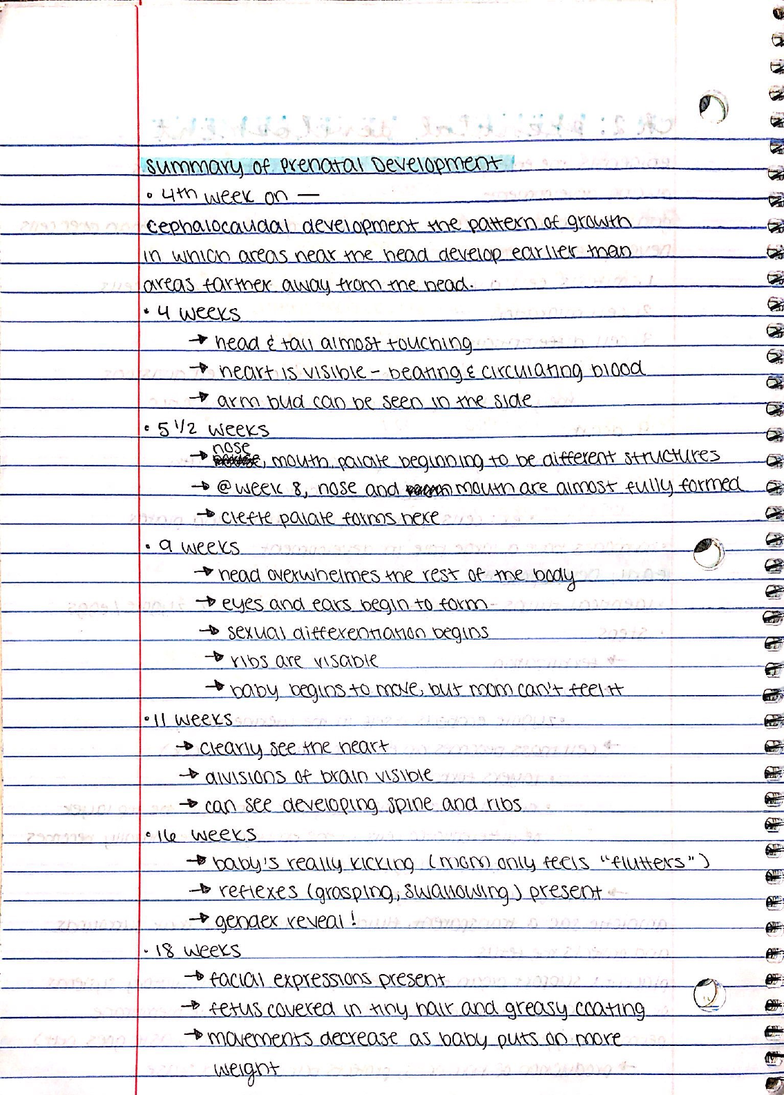 summary of Prenatal Development
• 4th week on —
cephalocaudal development the pattern of growth
in which areas near the head develop earlier than
areas farther away from the head.
• 4 weeks
→ head & tail almost touching
→ heart is visible - beating & circulating blood
→ arm bud can be seen in the side
• 5 1/2 weeks
→ nose, mouth, palate beginning to be different structures
→ @ week 8, nose and mouth are almost fully formed
→ clefte palate forms here
• 9 weeks
→ head overwhelmes the rest of the body
→ eyes and ears begin to form
→ sexual differentiation begins
→ ribs are visable
→ baby begins to move, but mom can't feel it
• 11 weeks
→ clearly see the heart
→ divisions of brain visible
→ can see developing spine and ribs
• 16 weeks
→ baby's really kicking (mom only feels "flutters")
→ reflexes (grasping, swallowing) present
→ gender reveal!
• 18 weeks
→ facial expressions present
→ fetus covered in tiny hair and greasy coating
→ movements decrease as baby puts on more
weight